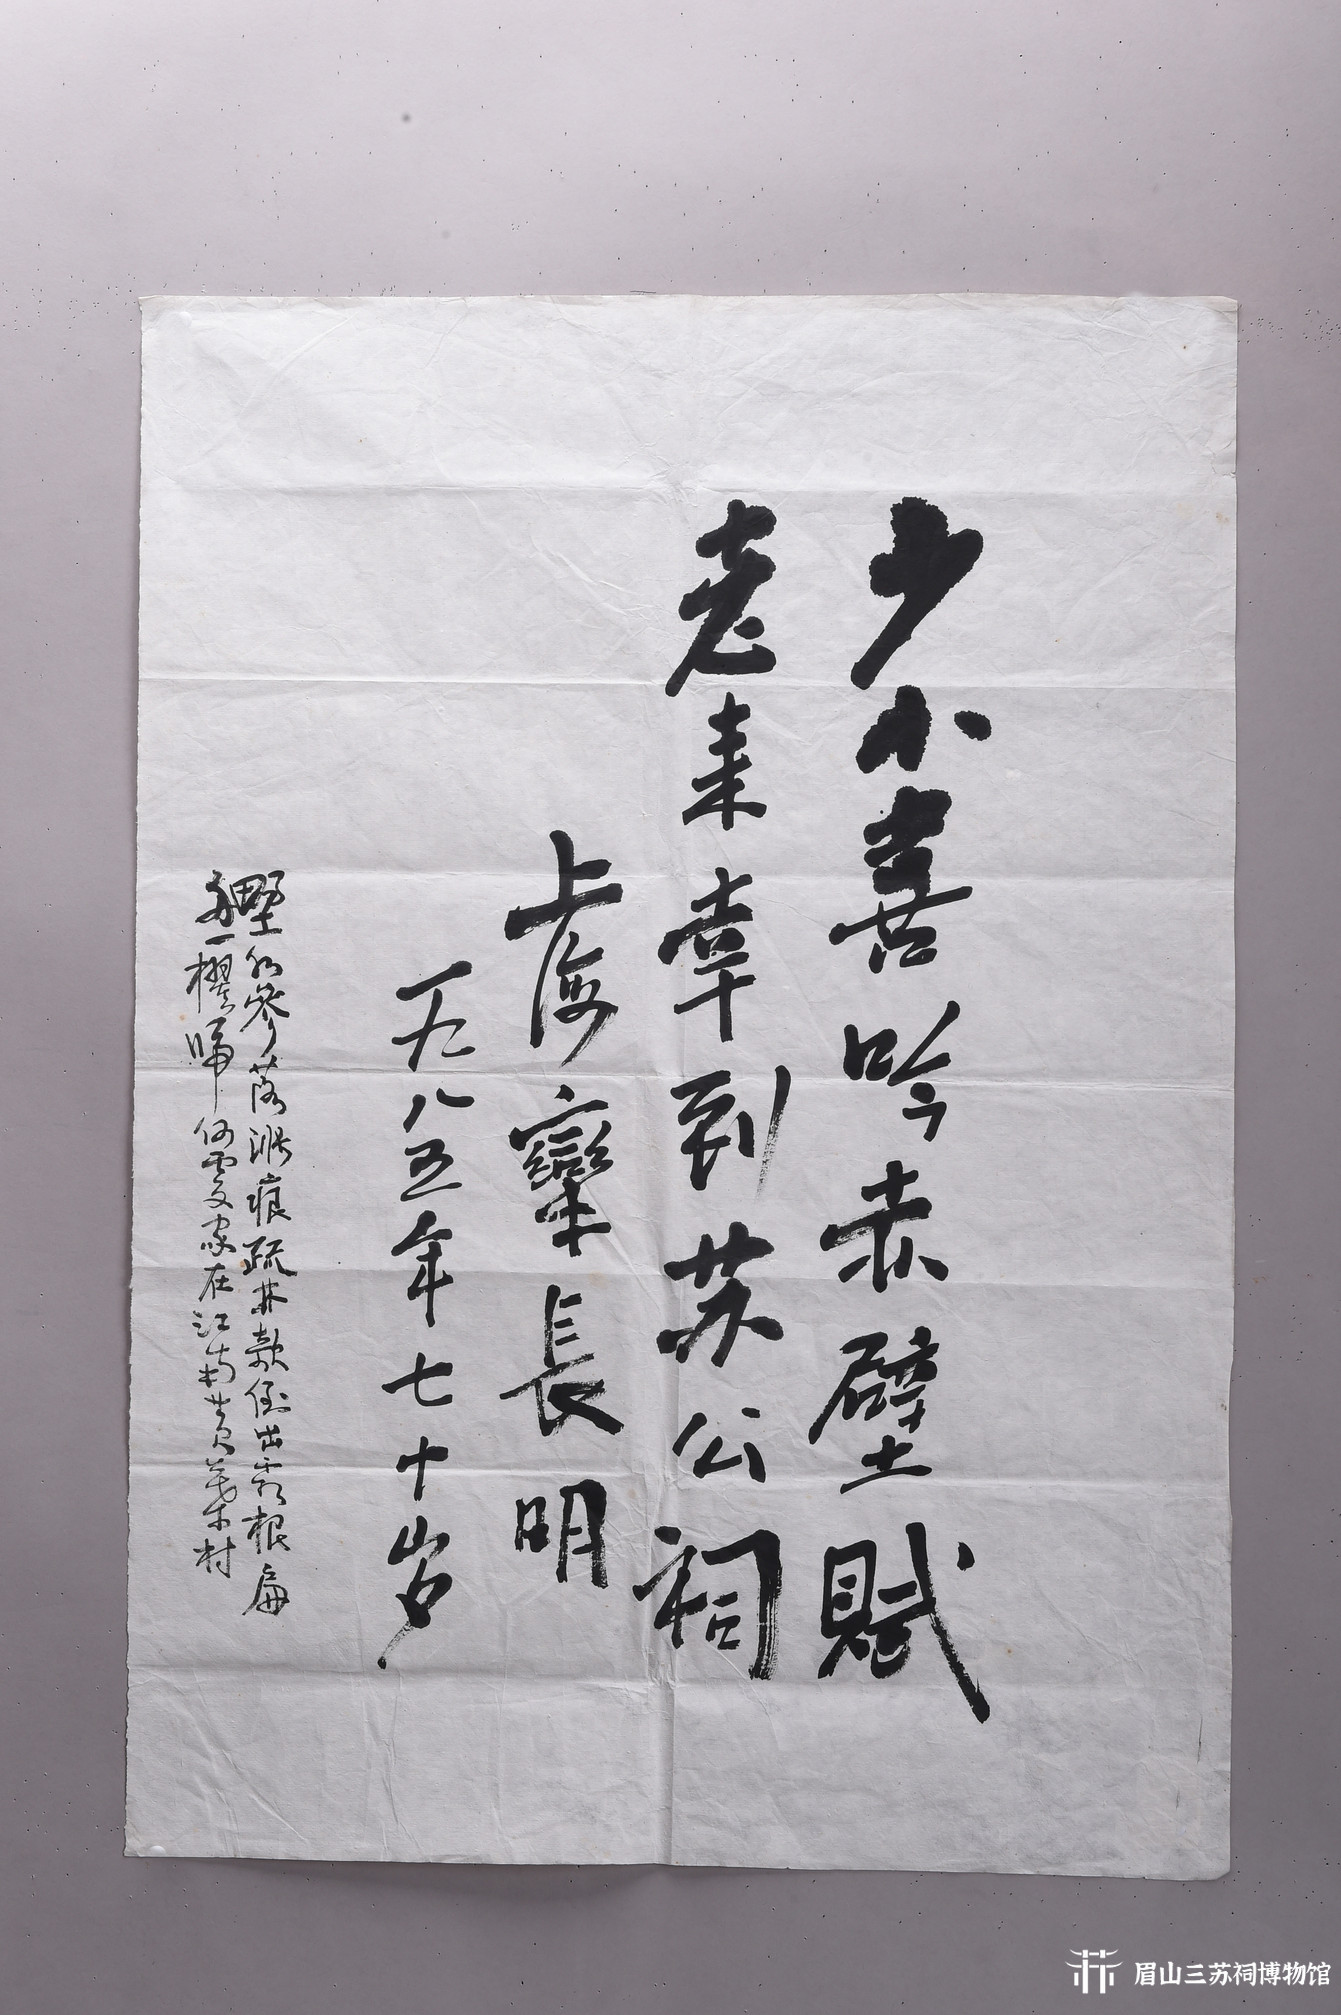 少小喜吟赤壁賦
老来幸到苏公祠
上海欒長明
一九八五年七十岁
野水參差落漲痕疏林欹倒出霜根扁
舟一櫂歸何處家在江南黄葉村
眉山三苏祠博物馆